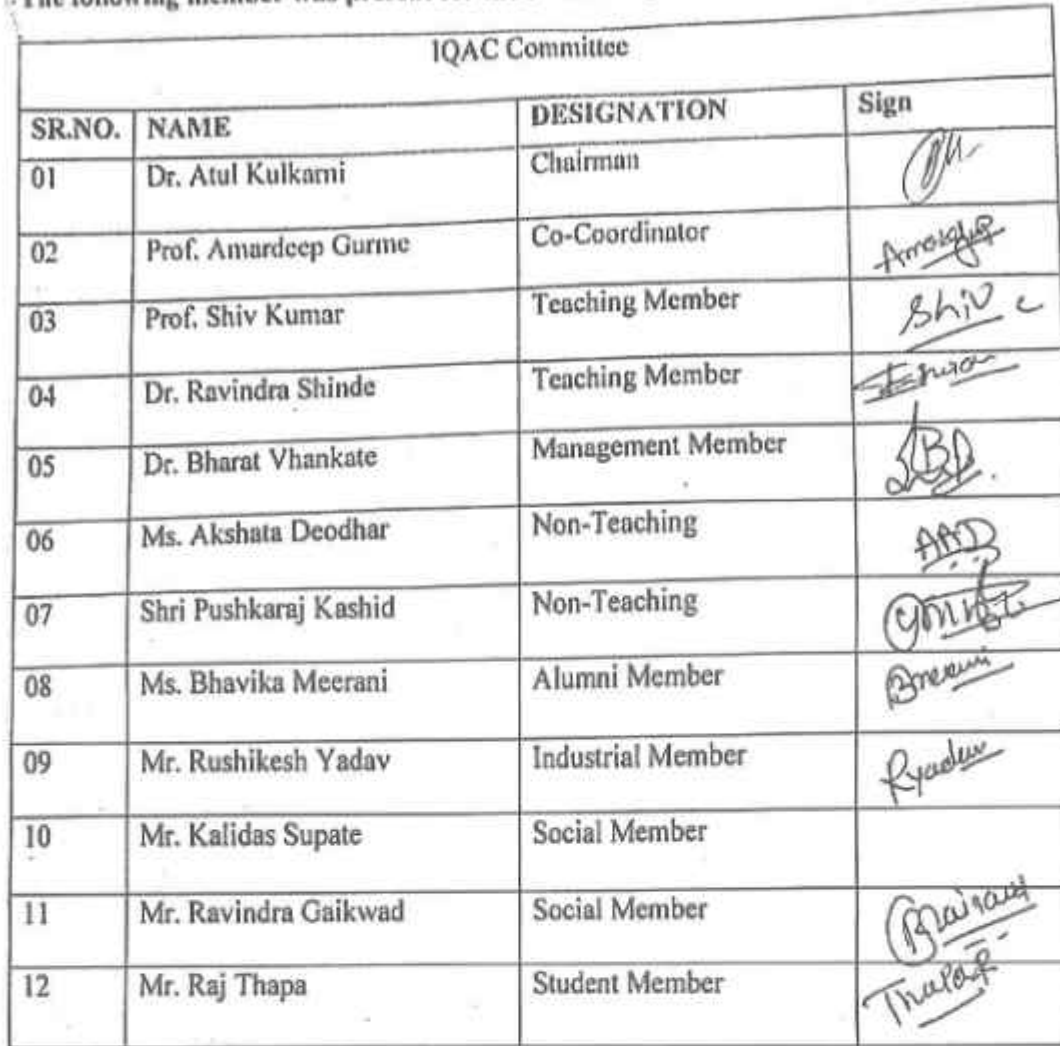 The following member was present for the
IQAC Committee
SR.NO. NAME DESIGNATION Sign
01 Dr. Atul Kulkarni Chairman
02 Prof. Amardeep Gurme Co-Coordinator
03 Prof. Shiv Kumar Teaching Member Shiv
04 Dr. Ravindra Shinde Teaching Member
05 Dr. Bharat Vhankate Management Member
06 Ms. Akshata Deodhar Non-Teaching AAD
07 Shri Pushkaraj Kashid Non-Teaching
08 Ms. Bhavika Meerani Alumni Member
09 Mr. Rushikesh Yadav Industrial Member Ryadav
10 Mr. Kalidas Supate Social Member
11 Mr. Ravindra Gaikwad Social Member
12 Mr. Raj Thapa Student Member